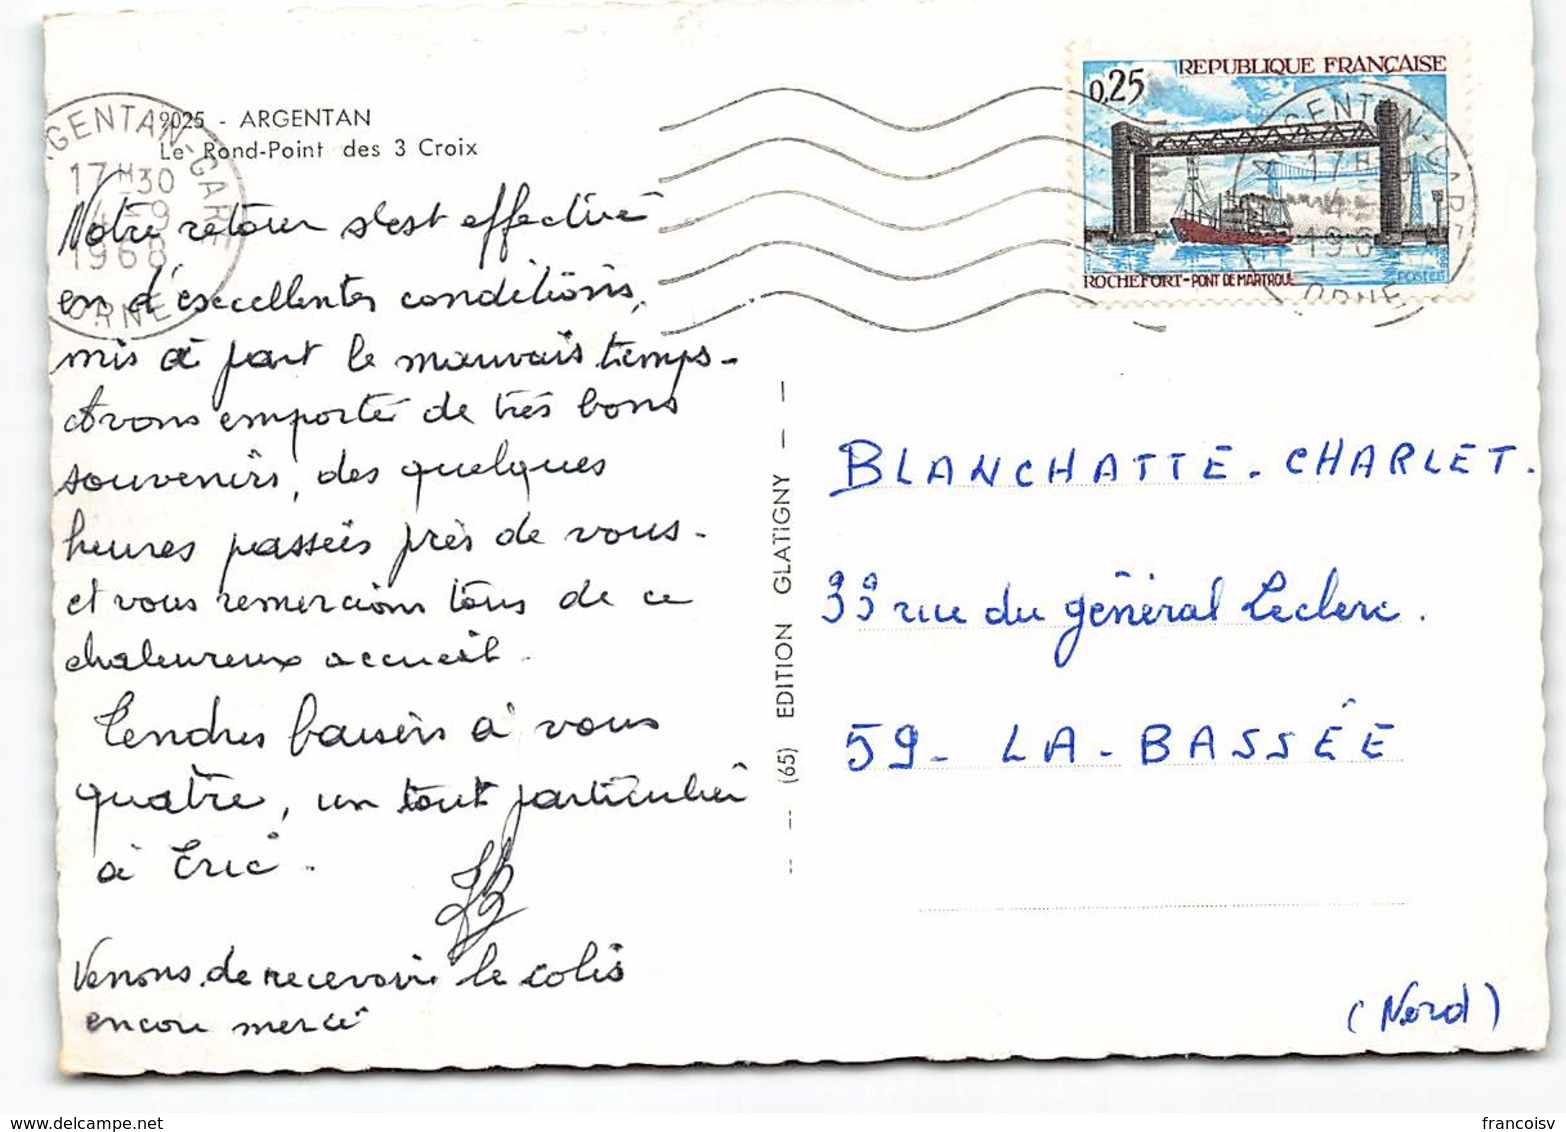 9025 - ARGENTAN
Le Rond-Point des 3 Croix
ARGENTAN-GARE
17H30
4-9
1968
ORNE
Notre retour s'est effectué
en d'excellentes conditions,
mis à part le mauvais temps-
Avons emporté de très bons
souvenirs, des quelques
heures passées près de vous-
et vous remercions tous de ce
chaleureux accueil.
Tendres baisers à vous
quatre, un tout particulier
à Eric.
Venons de recevoir le colis
encore merci
(65) EDITION GLATIGNY
REPUBLIQUE FRANÇAISE
0,25
ROCHEFORT-PONT DE MARTROU
POSTES
ARGENTAN-GARE
17H
4
196
ORNE
BLANCHATTE-CHARLET.
33 rue du général Leclerc.
59- LA-BASSÉE
(Nord)
francoisv